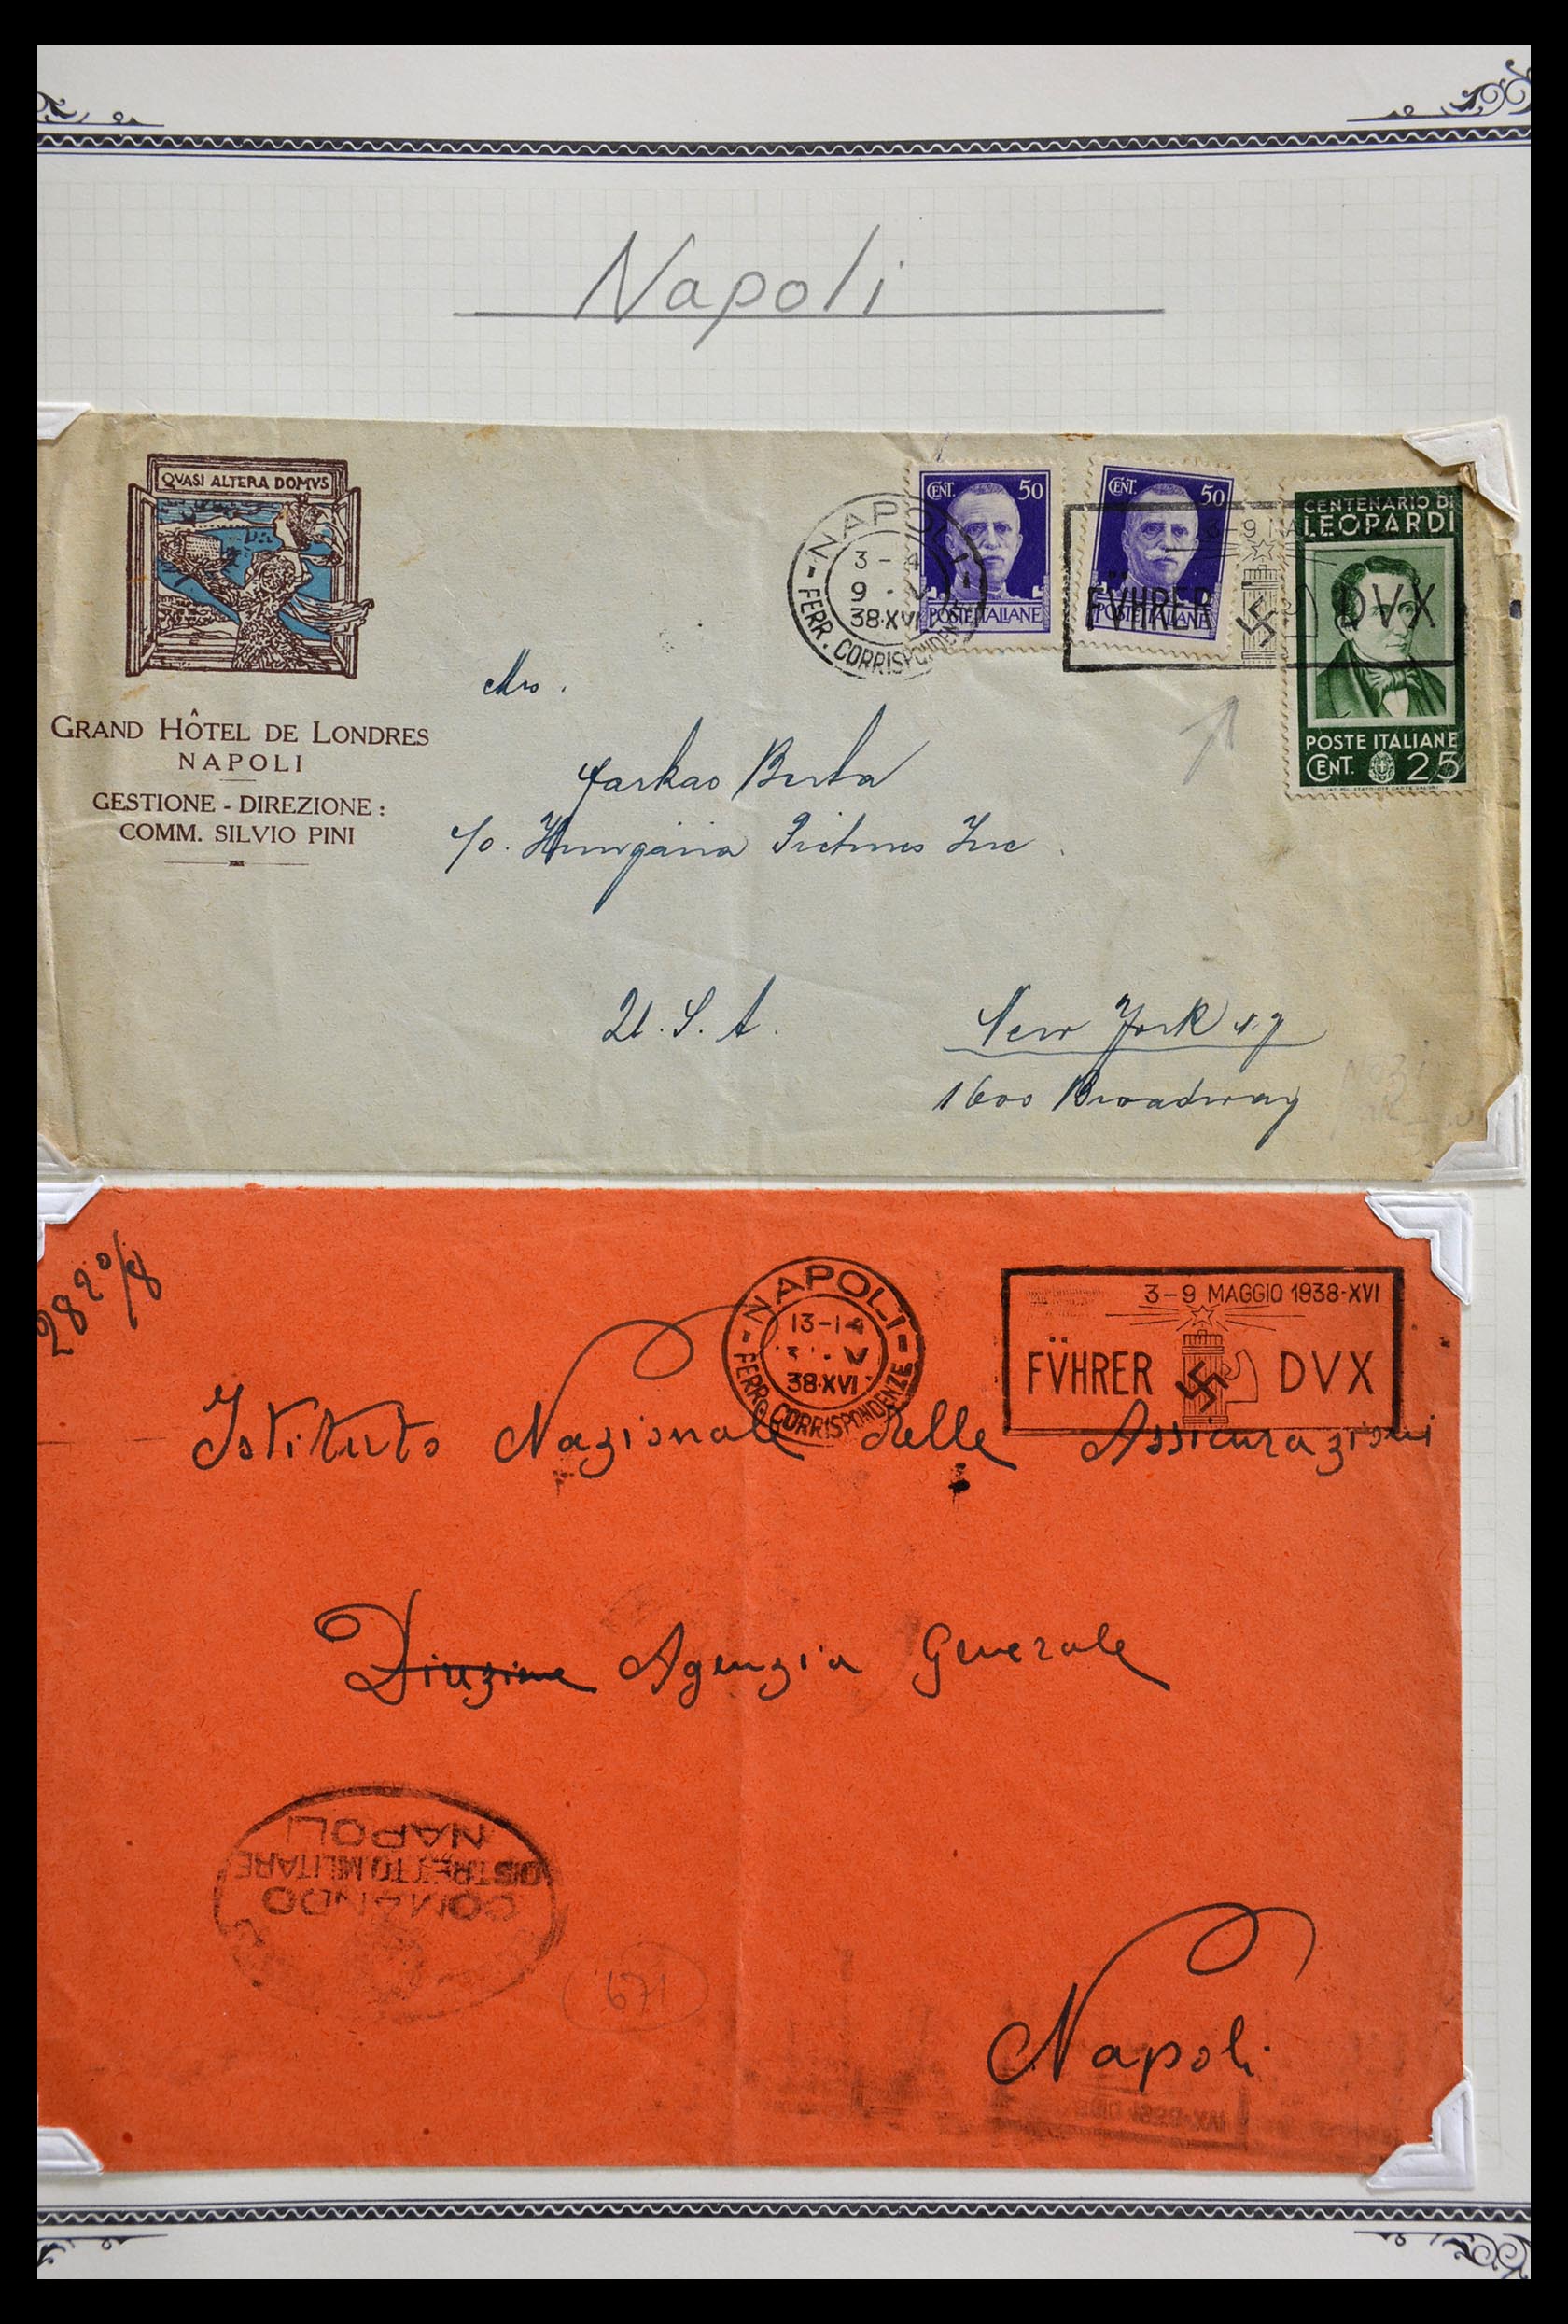 Napoli
QVASI ALTERA DOMVS
GRAND HÔTEL DE LONDRES
NAPOLI
GESTIONE - DIREZIONE :
COMM. SILVIO PINI
NAPOLI
3 - 4
9 . V
38·XVI
FERR. CORRISPONDENZE
CENT. 50
POSTE ITALIANE
CENT. 50
POSTE ITALIANE
3-9 MA
FÜHRER DVX
CENTENARIO DI
LEOPARDI
POSTE ITALIANE
CENT. 25
Mrs.
Farkas Berta
c/o. Hungaria Pictures Inc
U. S. A. New York n.y
1600 Broadway
NAPOLI
13-14
V
38·XVI
FERR. CORRISPONDENZE
3-9 MAGGIO 1938-XVI
FÜHRER DVX
Istituto Nazionale delle Assicurazioni
Direzione Agenzia Generale
COMANDO
DISTRETTO MILITARE
NAPOLI
671
Napoli